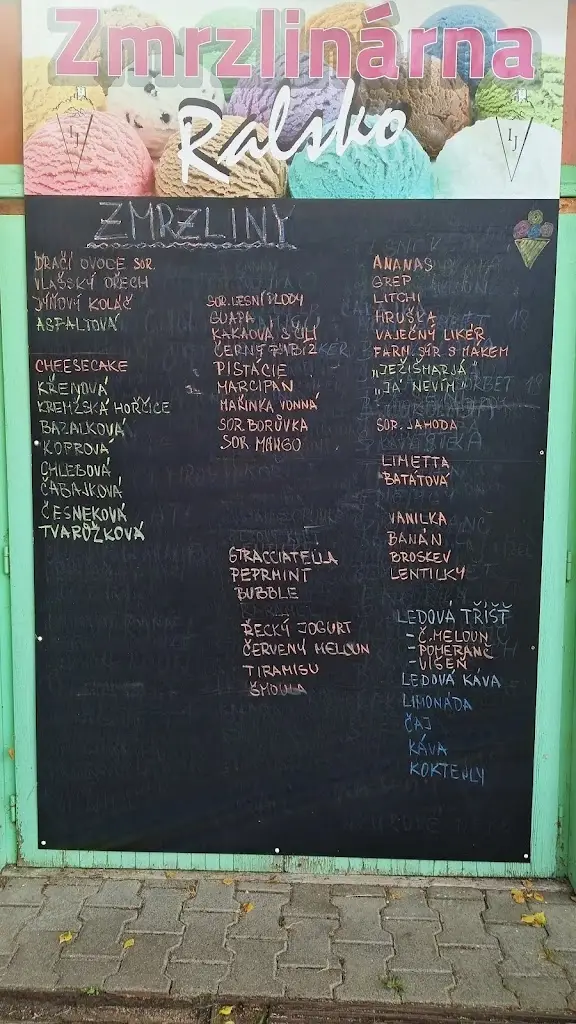 Zmrzlinárna
Ralsko
IJ
IJ
ZMRZLINY
DRAČÍ OVOCE SOR.
VLAŠSKÝ OŘECH
DÝŇOVÝ KOLÁČ
ASFALTOVÁ
CHEESECAKE
KŘENOVÁ
KREMŽSKÁ HOŘČICE
BAZALKOVÁ
KOPROVÁ
CHLEBOVÁ
ČABAJKOVÁ
ČESNEKOVÁ
TVARŮŽKOVÁ
SOR. LESNÍ PLODY
GUAPA
KAKAOVÁ S ČILI
ČERNÝ RYBÍZ
PISTÁCIE
MARCIPÁN
MAŘINKA VONNÁ
SOR. BORŮVKA
SOR. MANGO
STRACCIATELLA
PEPRMINT
BUBBLE
ŘECKÝ JOGURT
ČERVENÝ MELOUN
TIRAMISU
ŠMOULA
ANANAS
GREP
LITCHI
HRUŠKA
VAJEČNÝ LIKÉR
FARM. SÝR S MÁKEM
„JEŽIŠMARJÁ"
„JÁ NEVÍM"
SOR. JAHODA
LIMETTA
BATÁTOVÁ
VANILKA
BANÁN
BROSKEV
LENTILKY
LEDOVÁ TŘÍŠŤ
- Č. MELOUN
- POMERANČ
- VIŠEŇ
LEDOVÁ KÁVA
LIMONÁDA
ČAJ
KÁVA
KOKTEJLY